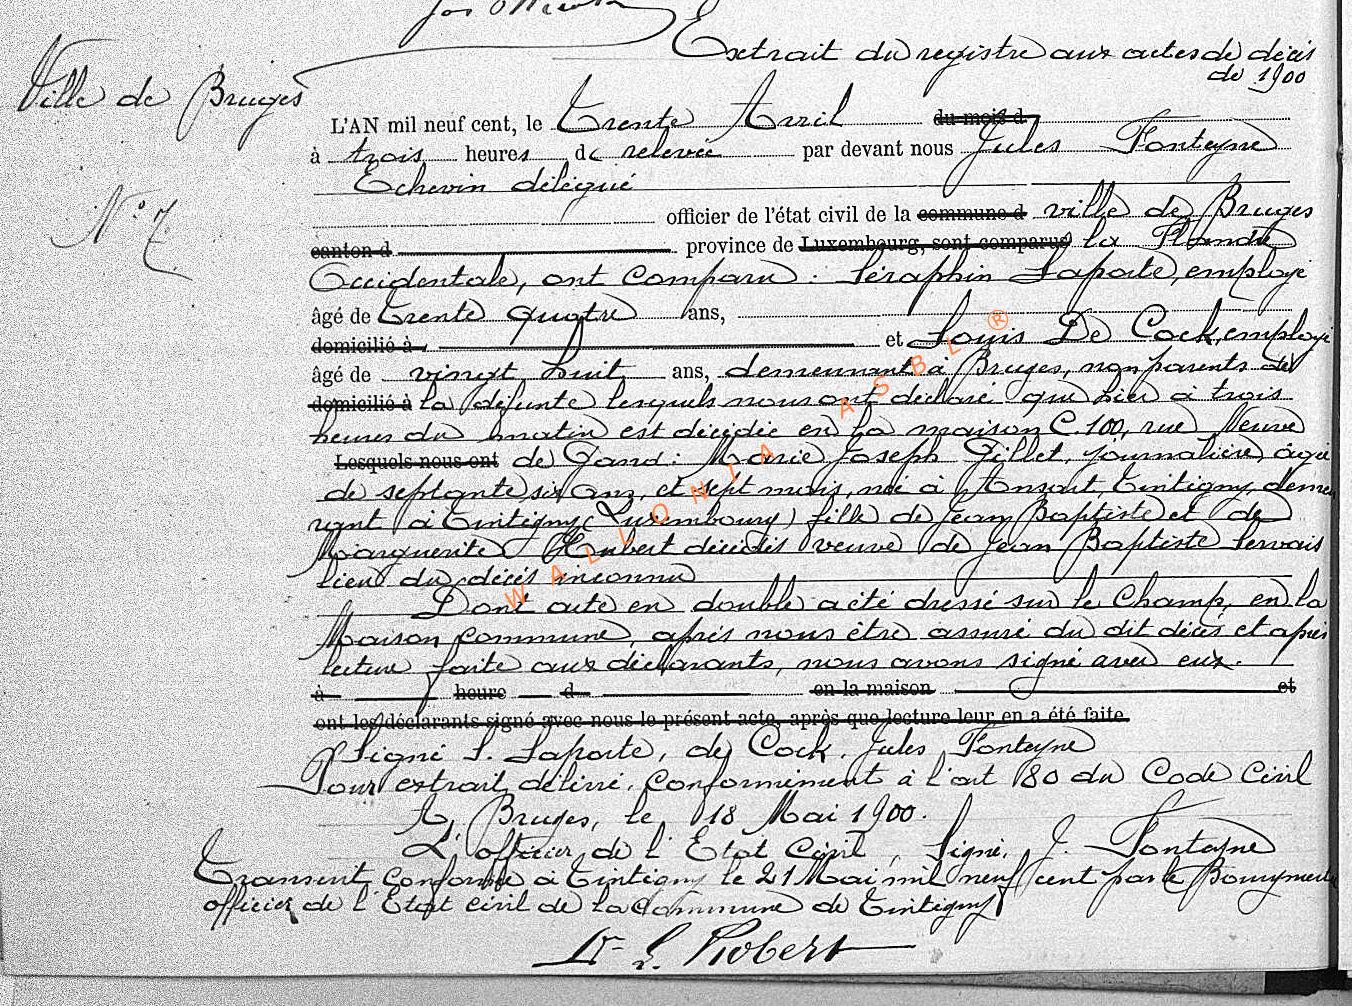 Extrait du registre aux actes de décès
de 1900
Ville de Bruges
N° 7.
L'AN mil neuf cent, le Trente Avril du mois d
à trois heures de relevée par devant nous Jules Fonteyne
Echevin délégué
officier de l'état civil de la commune d ville de Bruges
canton d province de Luxembourg, sont comparus la Flandre
Occidentale, ont comparu : Séraphin Laporte, employé
âgé de trente quatre ans,
domicilié à et Louis De Cock, employé
âgé de vingt huit ans, demeurant à Bruges, non parents de
domicilié à la défunte lesquels nous ont déclaré que hier à trois
heures du matin est décédée en la maison C. 100, rue Neuve
Lesquels nous ont de Gand : Marie Joseph Gillet, journalière, âgée
de septante six ans, et sept mois, née à Ansart, Tintigny, demeu
rant à Tintigny (Luxembourg) fille de Jean Baptiste et de
Marguerite Hubert décédés veuve de Jean Baptiste Servais
lieu du décès inconnu
Dont acte en double acté dressé sur le champ, en la
Maison commune, après nous être assuré du dit décès et après
lecture faite aux déclarants, nous avons signé avec eux.
à heure d en la maison et
ont les déclarants signé avec nous le présent acte, après que lecture leur en a été faite.
Signé S. Laporte, de Cock, Jules Fonteyne
Pour extrait délivré, conformément à l'art 80 du Code Civil
A, Bruges, le 18 Mai 1900.
L'officier de l'Etat Civil, Signé, J. Fonteyne
Transcrit conforme à Tintigny le 21 Mai mil neuf cent par le Bourgmestre
officier de l'Etat civil de la Commune de Tintigny
Robert
WALLONIA ASBL ®